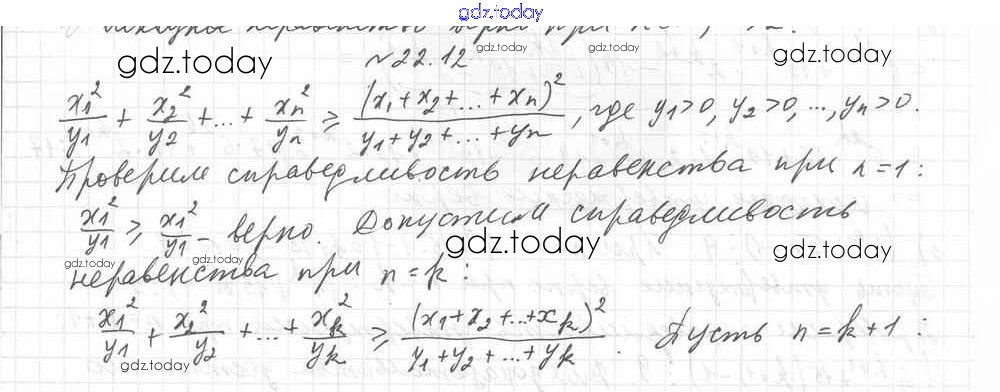 gdz.today
№22.12
gdz.today gdz.today gdz.today
x₁²/y₁ + x₂²/y₂ + ... + xₙ²/yₙ ≥ (x₁+x₂+...+xₙ)²/(y₁+y₂+...+yₙ), где y₁>0, y₂>0, ..., yₙ>0.
Проверим справедливость неравенства при n=1:
x₁²/y₁ ≥ x₁²/y₁ – верно. Допустим справедливость
gdz.today gdz.today gdz.today
неравенства при n=k:
x₁²/y₁ + x₂²/y₂ + ... + xₖ²/yₖ ≥ (x₁+x₂+...+xₖ)²/(y₁+y₂+...+yₖ). Пусть n=k+1: